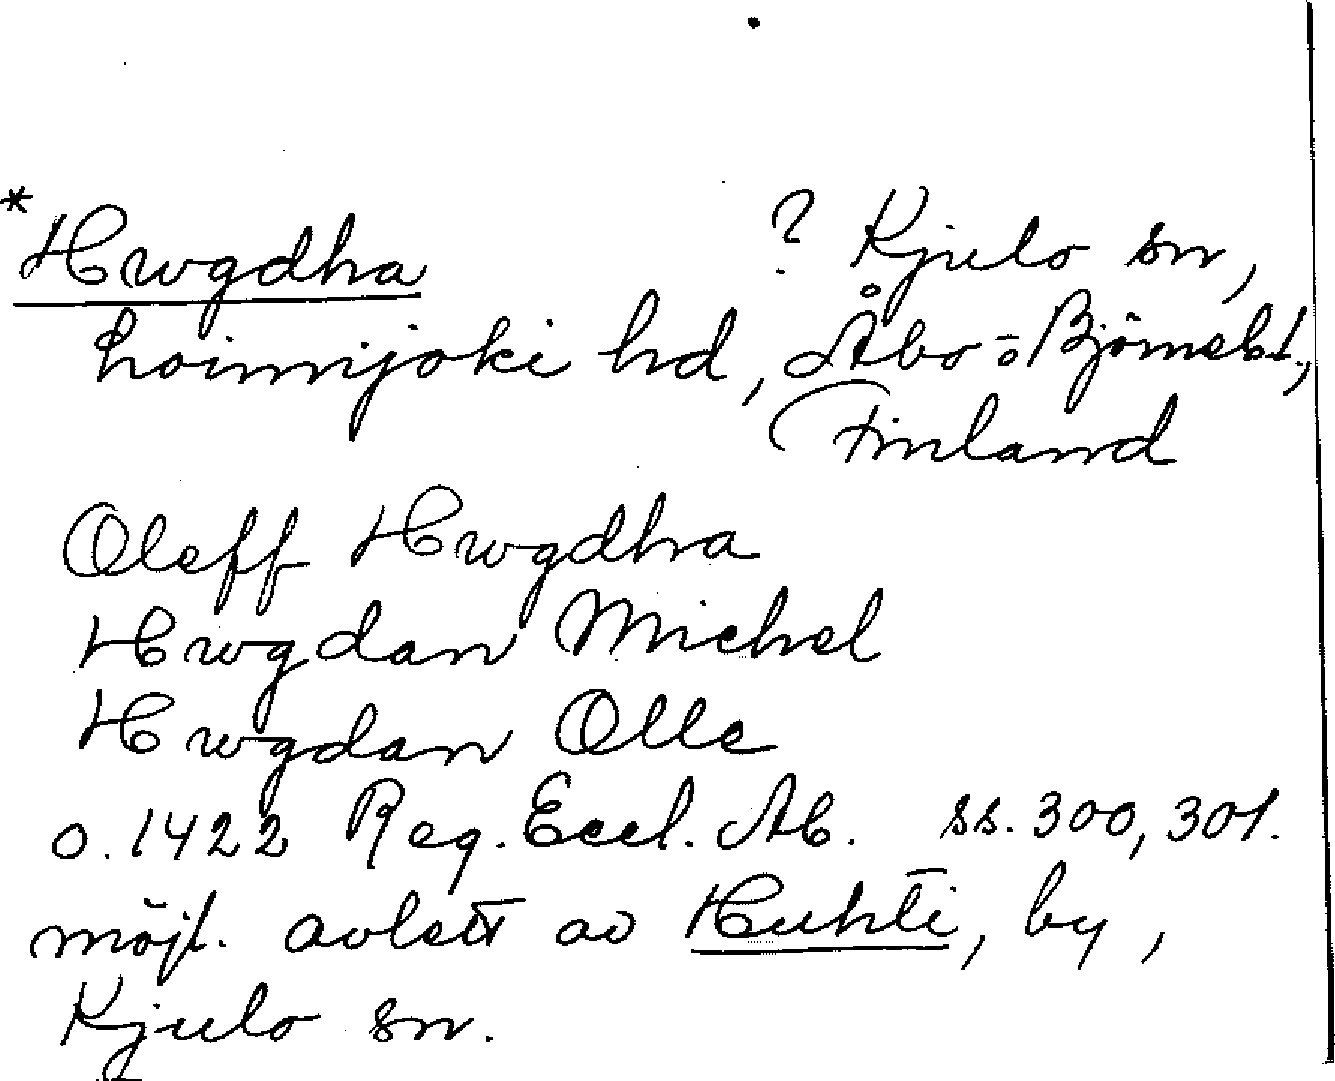 * Hwgdha ? Kjulo sn,
Loimijoki hd, Åbo o Björnebl,
Finland
Oleff Hwgdha
Hwgdan Michel
Hwgdan Olle
o. 1422 Reg. Eccl. Ab. ss. 300, 301.
möjl. avlett av Huhti, by,
Kjulo sn.